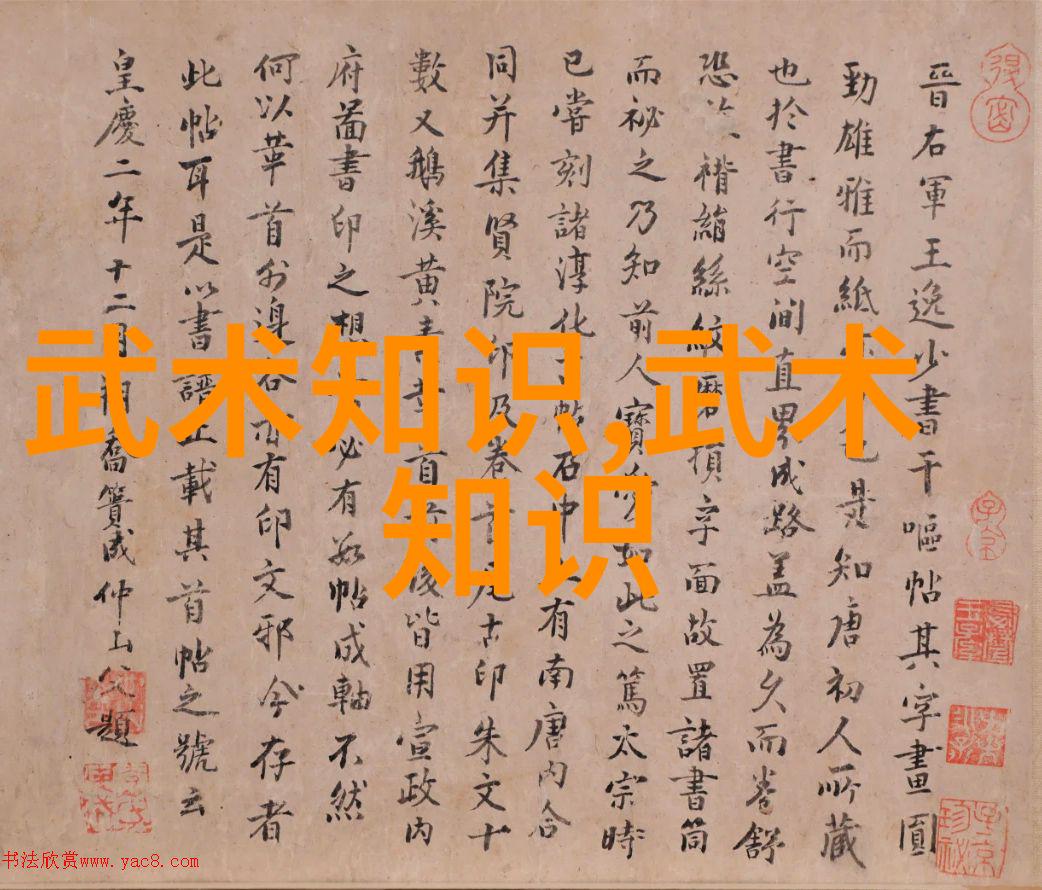 晉右軍王逸少書干嘔帖其字畫圓
勁雄雅而紙
也是知唐初人所藏
也於書行空間直畢成路蓋為久而卷舒
恐
褙綃絲紋磨
損字面故置諸書筒
而祕之乃知前人寶
如此之篤太宗時
已嘗刻諸淳化
帖
中
有南唐內合
同并集賢院印及卷
古印朱文十
數又鵝溪黃
首
後皆用宣政內
府啚書印之想
必有數帖成軸不然
何以華首外邊
有印文邪今存者
此帖耳是以書
止載其首帖之號云
皇慶二年十二月
喬簣成仲山父題
武术知识,武术
知识
书法欣赏www.yac8.com